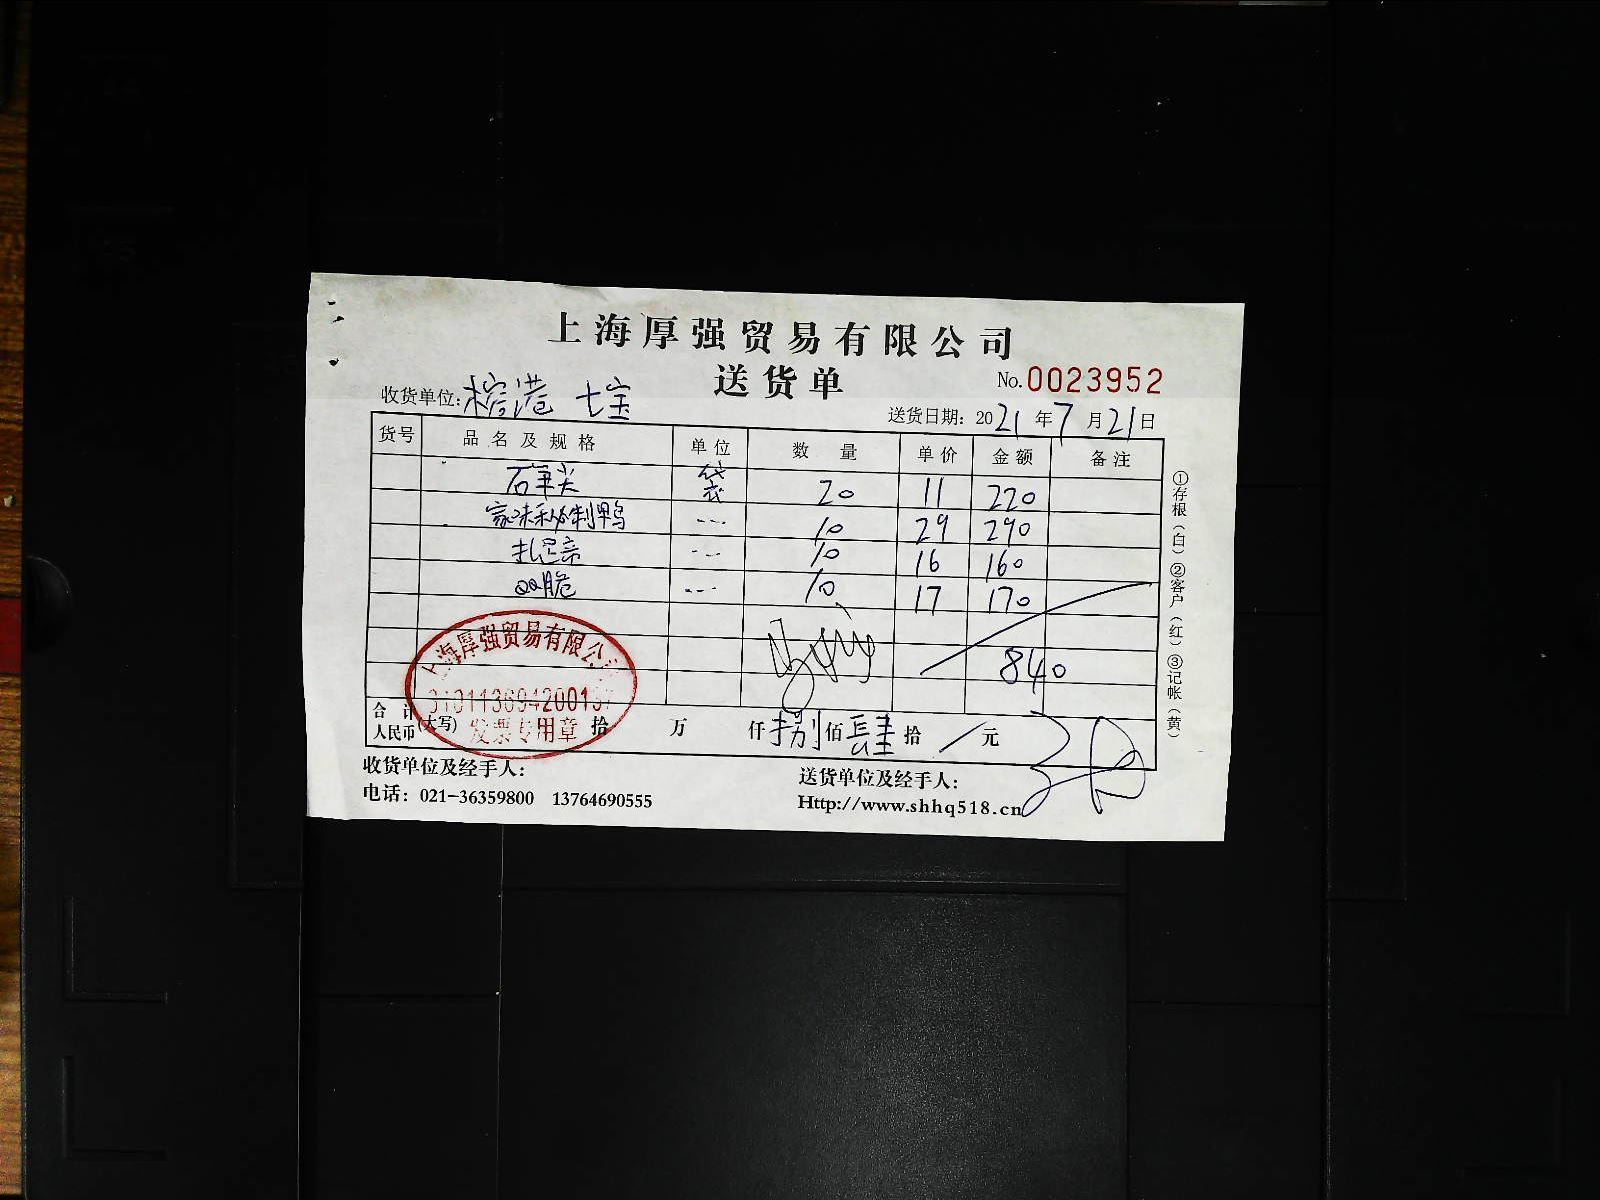 上海厚强贸易有限公司
送货单
No.0023952
收货单位：榕港 七宝
送货日期：2021年7月21日
货号 品名及规格 单位 数量 单价 金额 备注
石笋尖 袋 20 11 220
家味秘制鸭 --- 10 29 290
扎足亲 --- 10 16 160
QQ脆 --- 10 17 170
840
合计人民币(大写) 拾 万 仟 捌 佰 肆 拾 / 元
上海厚强贸易有限公
发票专用章
收货单位及经手人：
送货单位及经手人：
电话：021-36359800 13764690555
Http://www.shhq518.cn
①存根（白）②客户（红）③记帐（黄）